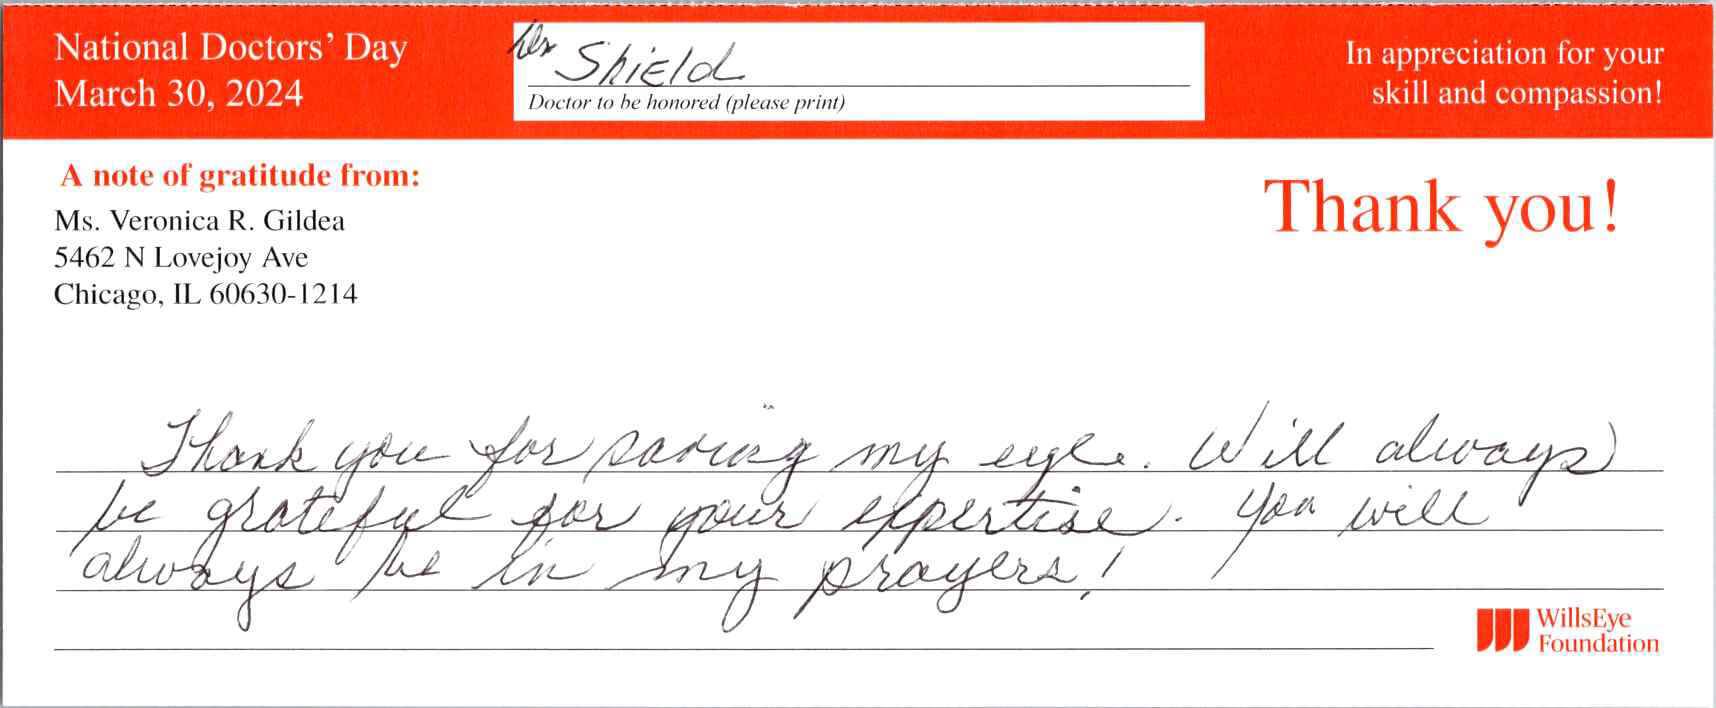 National Doctors' Day
March 30, 2024
Dr Shield
Doctor to be honored (please print)
In appreciation for your
skill and compassion!
A note of gratitude from:
Ms. Veronica R. Gildea
5462 N Lovejoy Ave
Chicago, IL 60630-1214
Thank you!
Thank you for saving my eye. Will always
be grateful for your expertise. You will
always be in my prayers!
WillsEye
Foundation